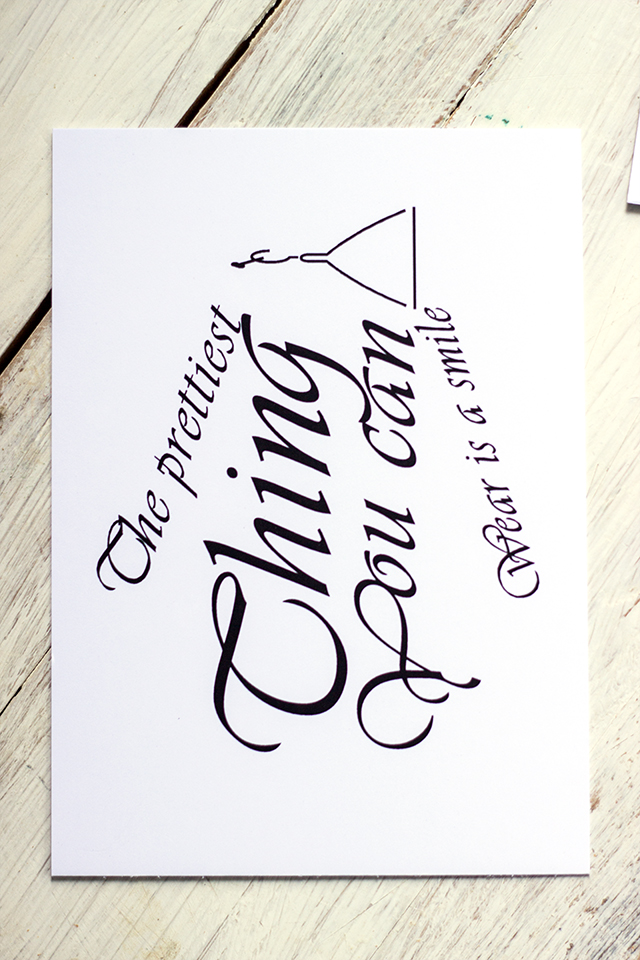 The prettiest
Thing
You can
Wear is a smile